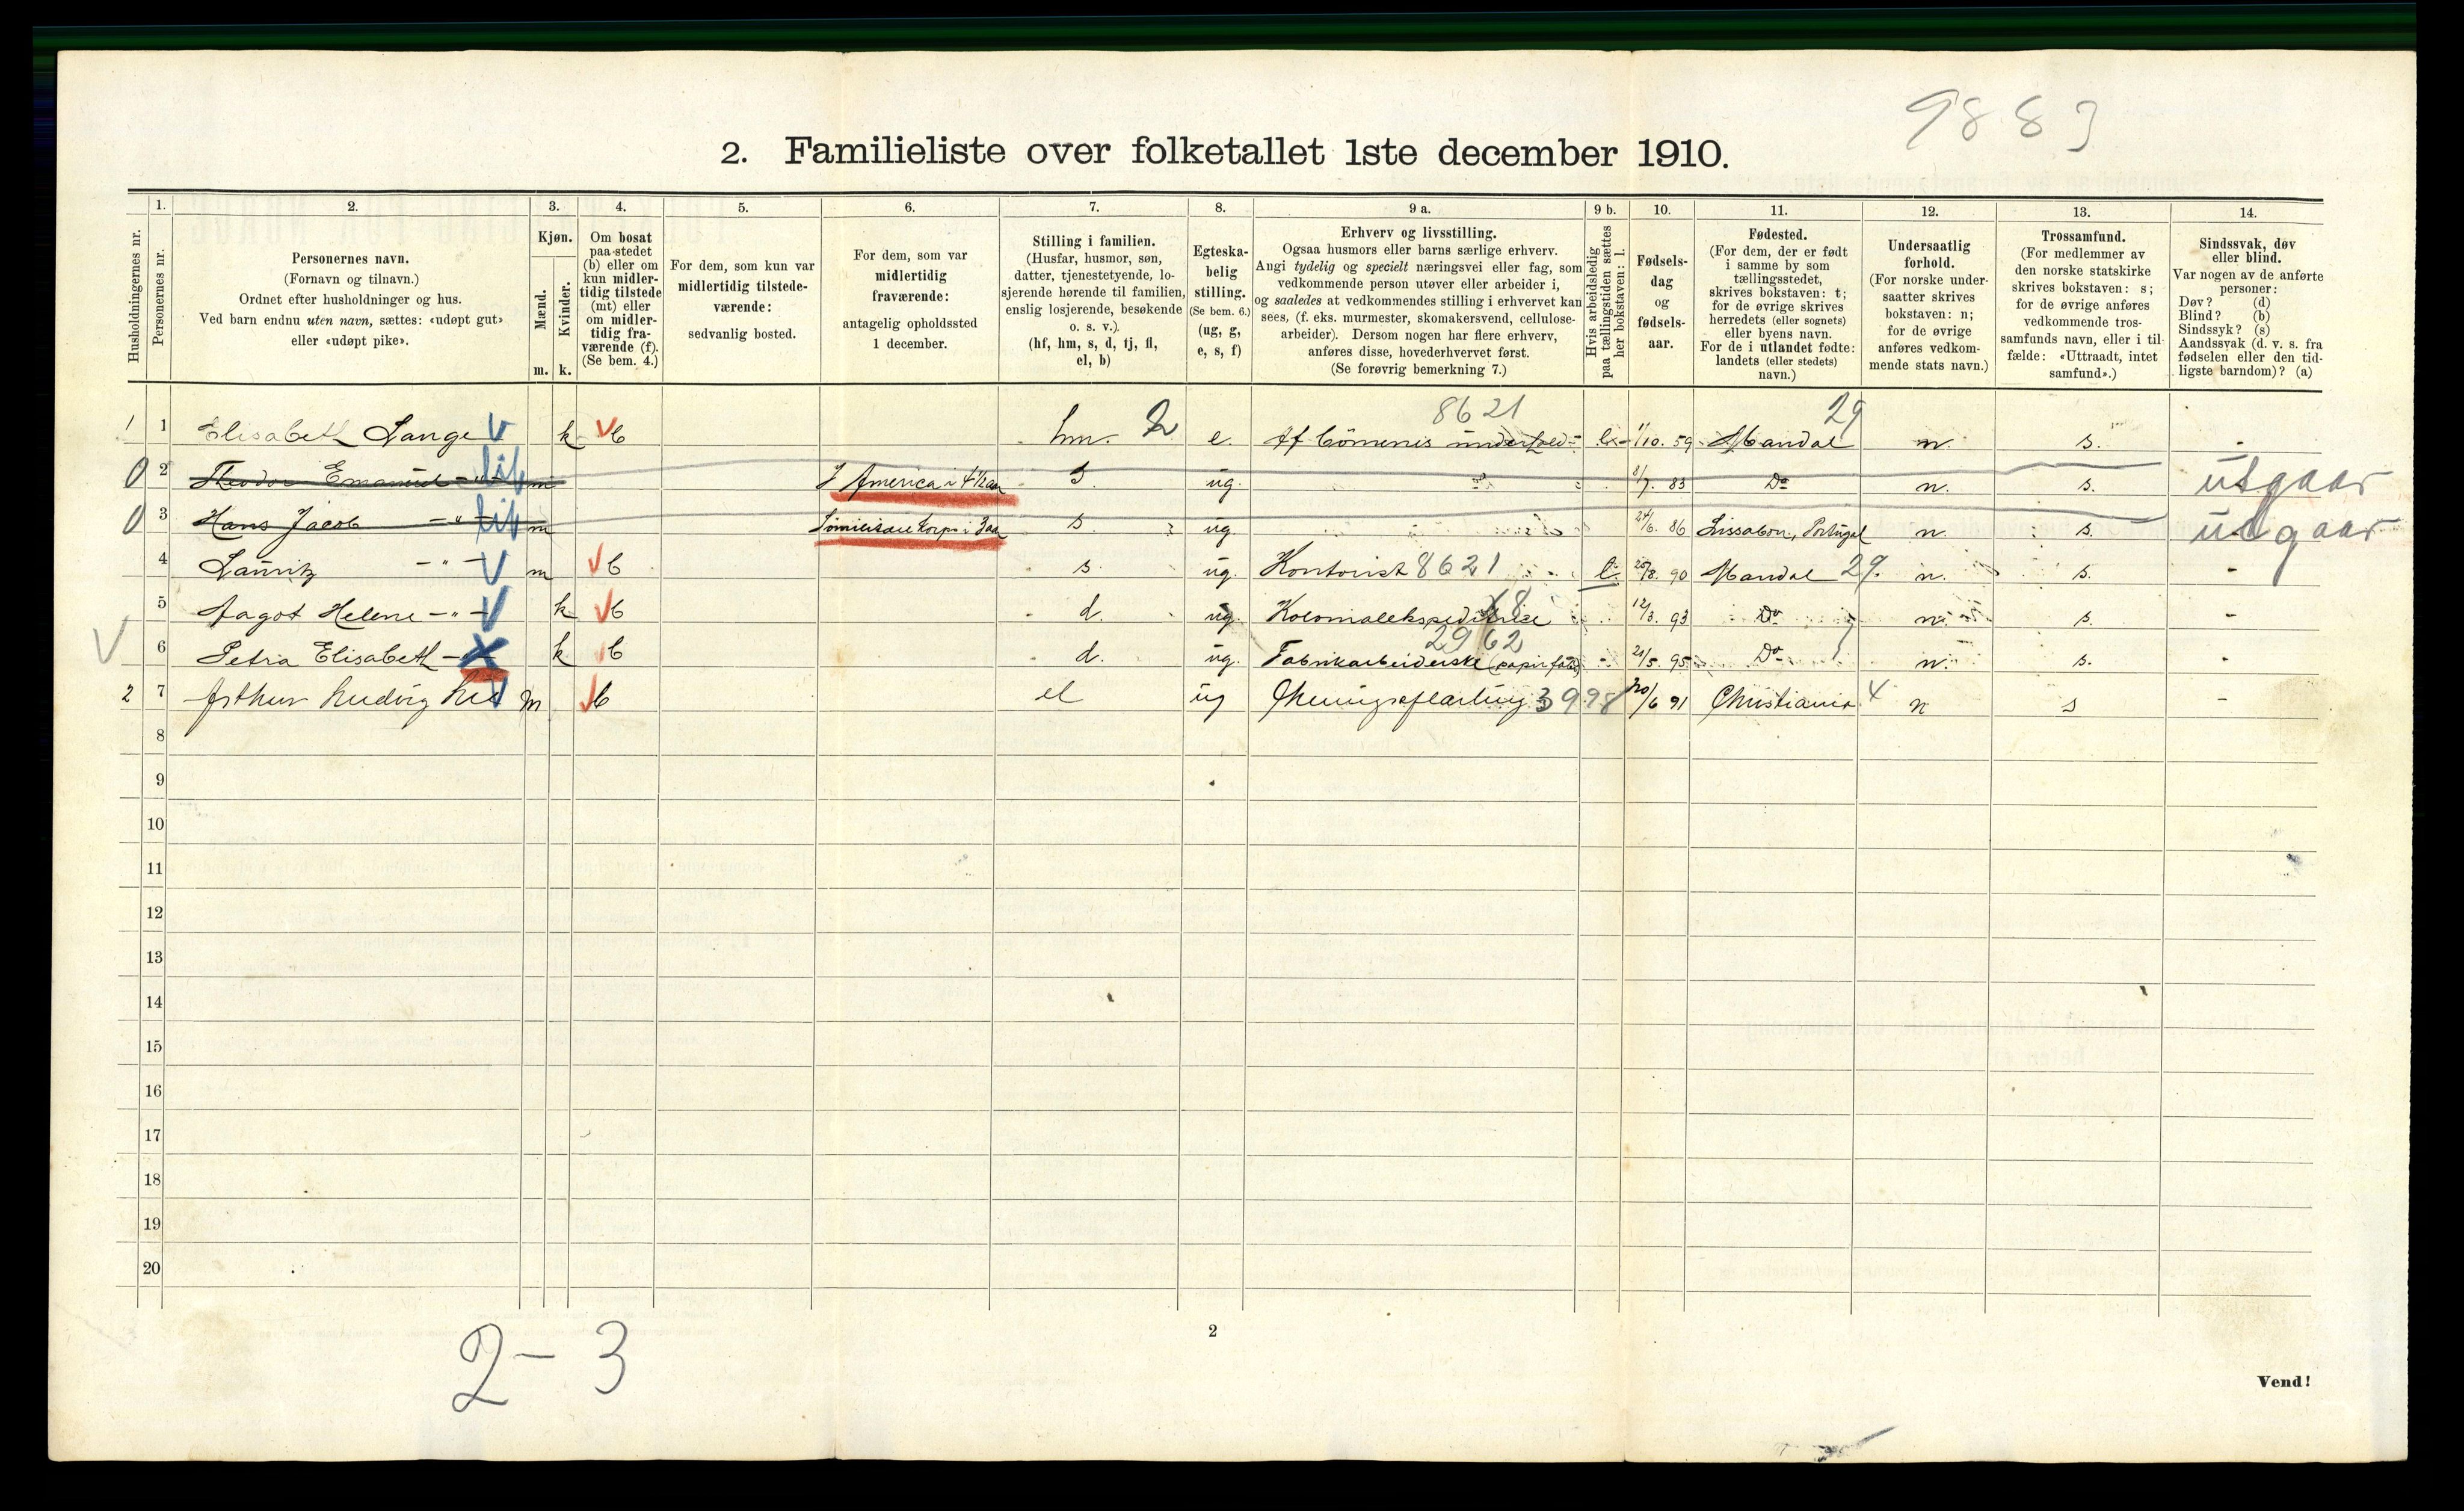 9883
2. Familieliste over folketallet 1ste december 1910.
1. 2. 3. 4. 5. 6. 7. 8. 9 a. 9 b. 10. 11. 12. 13. 14.
Husholdningernes nr.
Personernes nr.
Personernes navn.
(Fornavn og tilnavn.)
Ordnet efter husholdninger og hus.
Ved barn endnu uten navn, sættes: «udøpt gut»
eller «udøpt pike».
Kjøn.
Mænd.
Kvinder.
m. k.
Om bosat
paa stedet
(b) eller om
kun midler-
tidig tilstede
(mt) eller
om midler-
tidig fra-
værende (f).
(Se bem. 4.)
For dem, som kun var
midlertidig tilstede-
værende:
sedvanlig bosted.
For dem, som var
midlertidig
fraværende:
antagelig opholdssted
1 december.
Stilling i familien.
(Husfar, husmor, søn,
datter, tjenestetyende, lo-
sjerende hørende til familien,
enslig losjerende, besøkende
o. s. v.)
(hf, hm, s, d, tj, fl,
el, b)
Egteska-
belig
stilling.
(Se bem. 6.)
(ug, g,
e, s, f)
Erhverv og livsstilling.
Ogsaa husmors eller barns særlige erhverv.
Angi tydelig og specielt næringsvei eller fag, som
vedkommende person utøver eller arbeider i,
og saaledes at vedkommendes stilling i erhvervet kan
sees, (f. eks. murmester, skomakersvend, cellulose-
arbeider). Dersom nogen har flere erhverv,
anføres disse, hovederhvervet først.
(Se forøvrig bemerkning 7.)
Hvis arbeidsledig
paa tællingstiden sættes
her bokstaven: l.
Fødsels-
dag
og
fødsels-
aar.
Fødested.
(For dem, der er født
i samme by som
tællingsstedet,
skrives bokstaven: t;
for de øvrige skrives
herredets (eller sognets)
eller byens navn.
For de i utlandet fødte:
landets (eller stedets)
navn.)
Undersaatlig
forhold.
(For norske under-
saatter skrives
bokstaven: n;
for de øvrige
anføres vedkom-
mende stats navn.)
Trossamfund.
(For medlemmer av
den norske statskirke
skrives bokstaven: s;
for de øvrige anføres
vedkommende tros-
samfunds navn, eller i til-
fælde: «Uttraadt, intet
samfund».)
Sindssvak, døv
eller blind.
Var nogen av de anførte
personer:
Døv? (d)
Blind? (b)
Sindssyk? (s)
Aandssvak (d. v. s. fra
fødselen eller den tid-
ligste barndom)? (a)
8621 29
1 1 Elisabeth Lange k b hm. 2 e. 1/10. 59 Mandal n. s. -
0 2 Theodor Emanuel -"- m I America i s. ug. 8/7. 83 Do n. s. utgaar
0 3 Hans Jacob -"- m s. ug. 24/6. 86 Lissabon, Portugal n. s. utgaar
4 Lauritz -"- m b s. ug. Kontorist 8621 l. 25/8. 90 Mandal 29. n. s. -
5 Aagot Helene -"- k b d. ug. 12/3. 93 Do n. s. -
2962
6 Petra Elisabeth -"- k b d. ug. Fabrikarbeiderske 21/5. 95 Do n. s. -
2 7 Arthur Ludvig m b el ug 3998 20/6 91 Christiania 4 n s -
8
9
10
11
12
13
14
15
16
17
18
19
20
2 - 3
2
Vend!